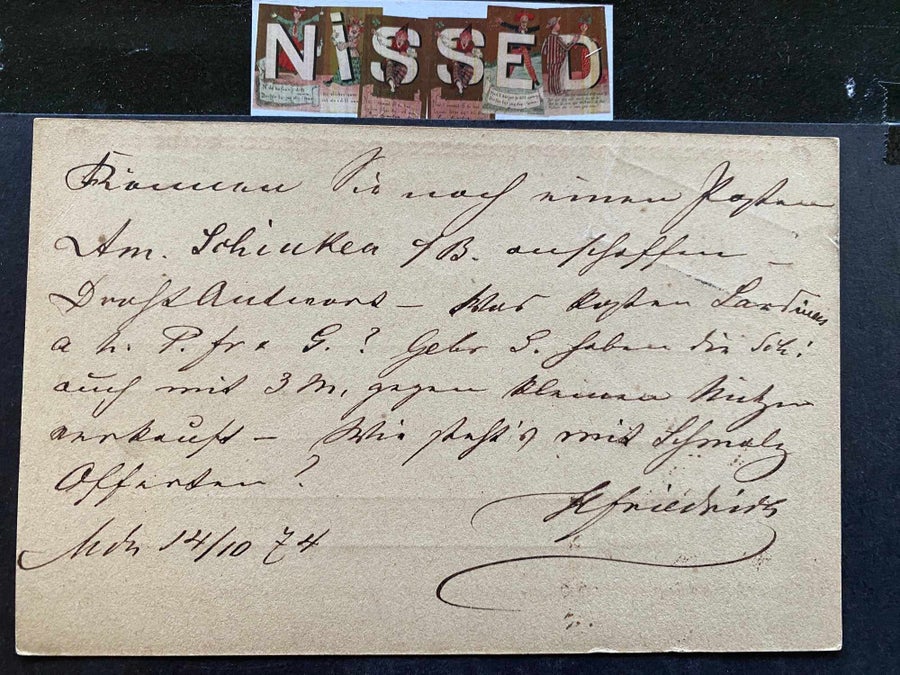 NiSSED
Können Sie noch einen Posten
Am. Schinken p/B. anschaffen –
DrahtAntwort – Was kosten Sardinen
a n. P. fr a G.? Gebr S. haben die Sch!
auch mit 3 M, gegen kleinen Nutzen
verkauft – Wie steht's mit Schmalz
Offerten?
HFriedrich
Mdn 14/10 74